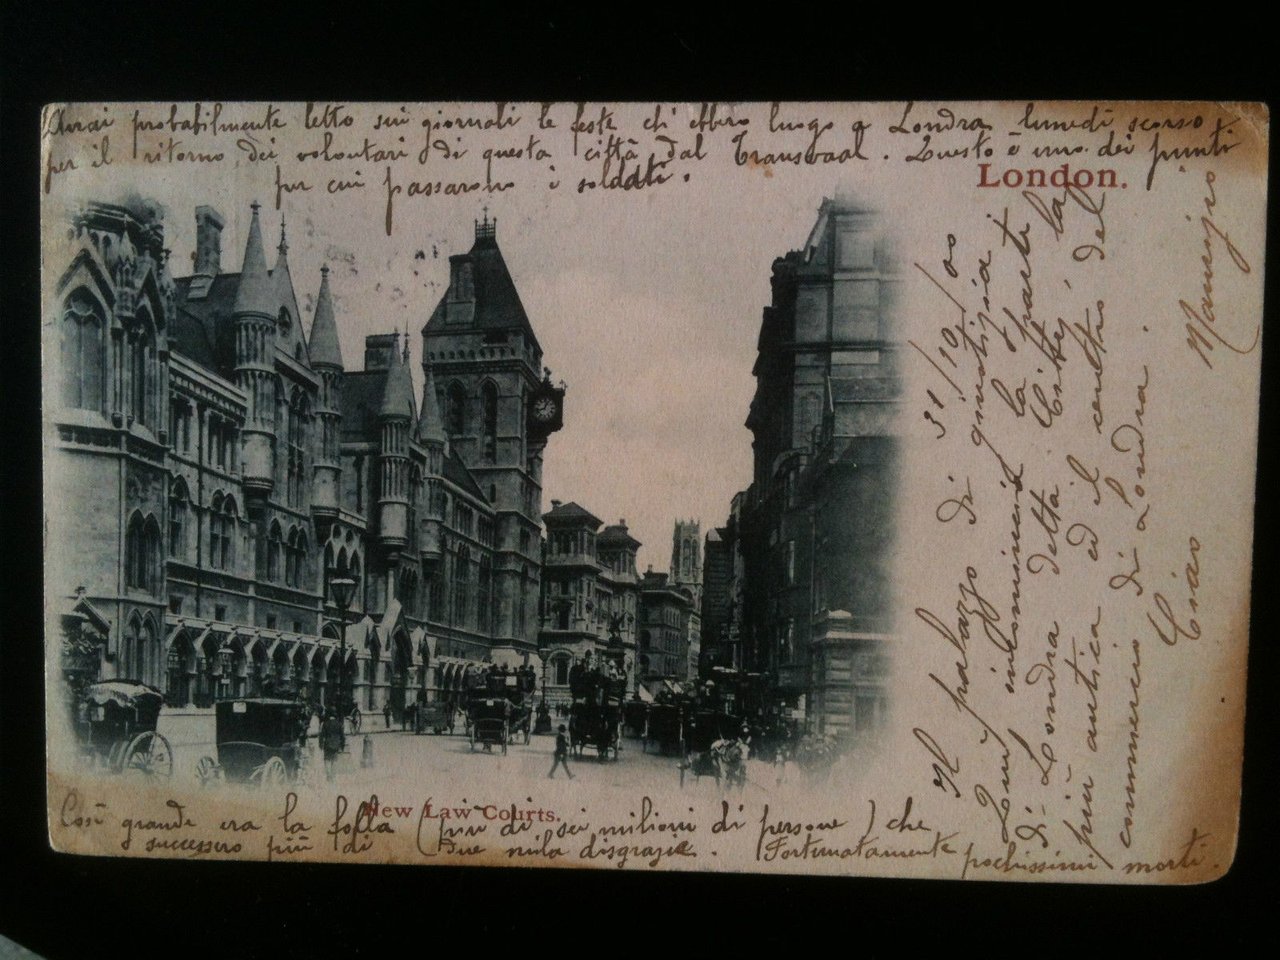 Avrai probabilmente letto sui giornali le feste ch' ebbero luogo a Londra lunedì scorso
per il ritorno dei volontari di questa città dal Transvaal. Questo è uno dei punti
per cui passarono i soldati.
London.
31/10/00
Il palazzo di giustizia
Qui incomincia la parte
di Londra detta City, la
più antica ed il centro del
commercio di Londra.
Ciao
New Law Courts.
Così grande era la folla (più di sei milioni di persone) che
successero più di due mila disgrazie. Fortunatamente pochissimi morti.